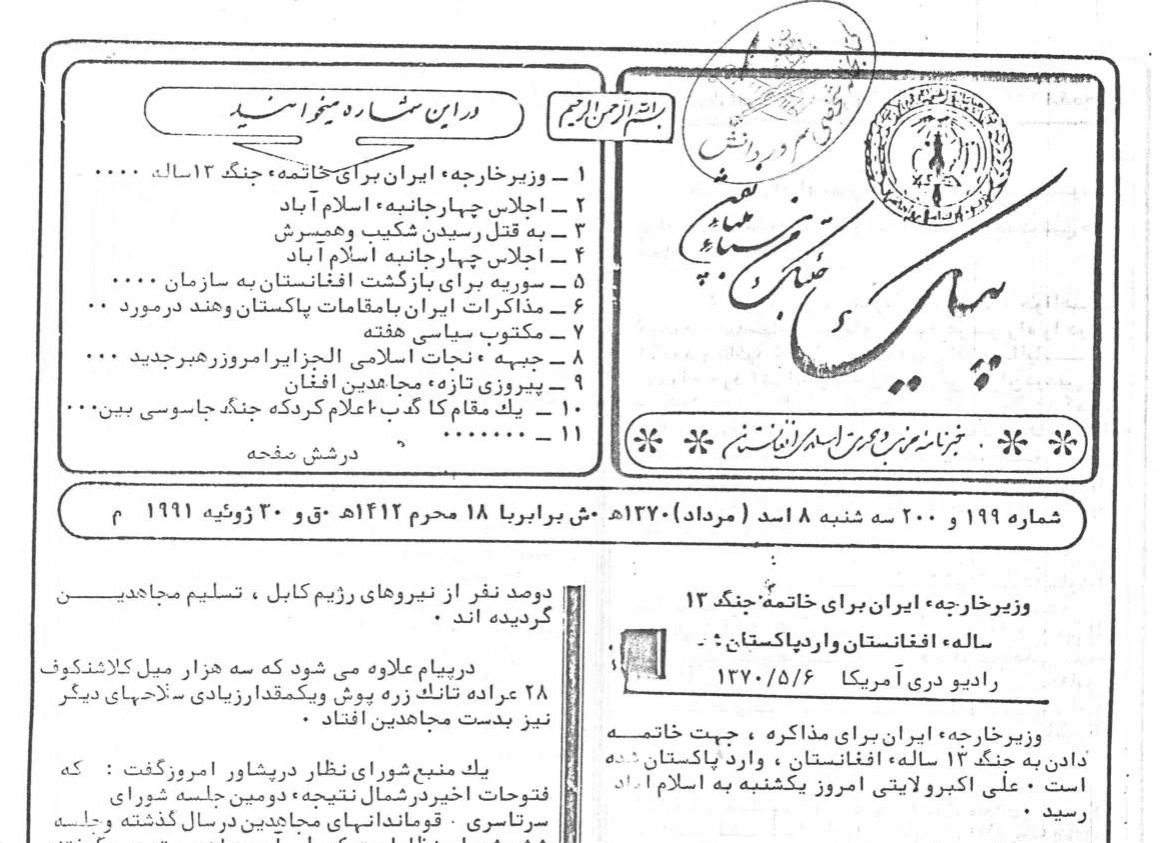 بسم الله الرحمن الرحیم
پیام
خبرنامه حزب وحدت اسلامی افغانستان
دراین شماره میخوانید
۱ ــ وزیرخارجهء ایران برای خاتمهء جنگ ۱۳ساله ۰۰۰۰
۲ ــ اجلاس چهارجانبهء اسلام آباد
۳ ــ به قتل رسیدن شکیب وهمسرش
۴ ــ اجلاس چهارجانبه اسلام آباد
۵ ــ سوریه برای بازگشت افغانستان به سازمان ۰۰۰۰
۶ ــ مذاکرات ایران بامقامات پاکستان وهند درمورد ۰۰
۷ ــ مکتوب سیاسی هفته
۸ ــ جبههء نجات اسلامی الجزایرامروزرهبرجدید ۰۰۰
۹ ــ پیروزی تازهء مجاهدین افغان
۱۰ ــ یك مقام کا گ ب اعلام کردکه جنگ جاسوسی بین۰۰۰
۱۱ ــ ۰۰۰۰۰۰۰
درشش صفحه
شماره ۱۹۹ و ۲۰۰ سه شنبه ۸ اسد ( مرداد)۱۳۷۰هـ ۰ش برابربا ۱۸ محرم ۱۴۱۲هـ ۰ق و ۳۰ ژوئیه ۱۹۹۱ م
وزیرخارجهء ایران برای خاتمه جنگ ۱۳
سالهء افغانستان واردپاکستان شد
رادیو دری آمریکا ۱۳۷۰/۵/۶
وزیرخارجهء ایران برای مذاکره ، جهت خاتمــه
دادن به جنگ ۱۳ سالهء افغانستان ، وارد پاکستان شده
است ۰ علی اکبرولایتی امروز یکشنبه به اسلام اباد
رسید ۰
دوصد نفر از نیروهای رژیم کابل ، تسلیم مجاهدیـــــن
گردیده اند ۰
درپیام علاوه می شود که سه هزار میل کلاشنکوف
۲۸ عراده تانك زره پوش ویکمقدارزیادی سلاحهای دیگر
نیز بدست مجاهدین افتاد ۰
یك منبع شورای نظار درپشاور امروزگفت : که
فتوحات اخیردرشمال نتیجهء دومین جلسه شورای
سرتاسری ۰ قوماندانهای مجاهدین درسال گذشته وجلسه